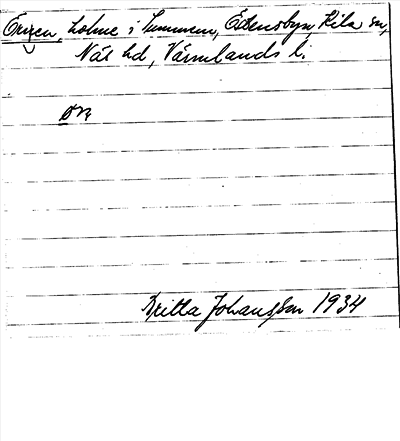 Öryen, holme i Summeln, Östensbyn, Kila sn,
Näs hd, Värmlands l.
Britta Johansson 1934